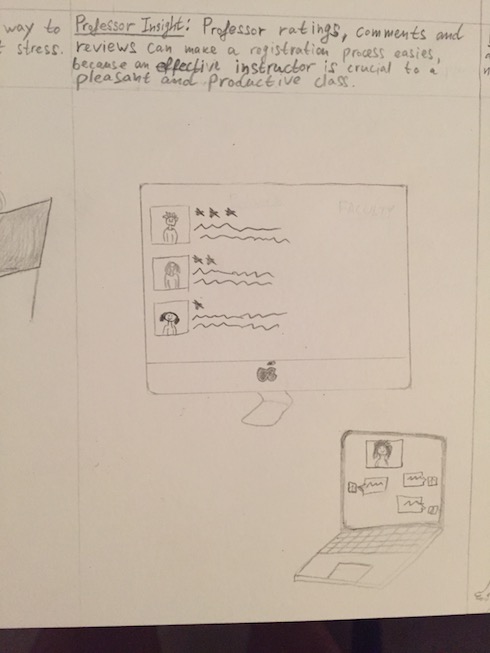 way to
stress.
Professor Insight: Professor ratings, comments and
reviews can make a registration process easies,
because an effective instructor is crucial to a
pleasant and productive class.